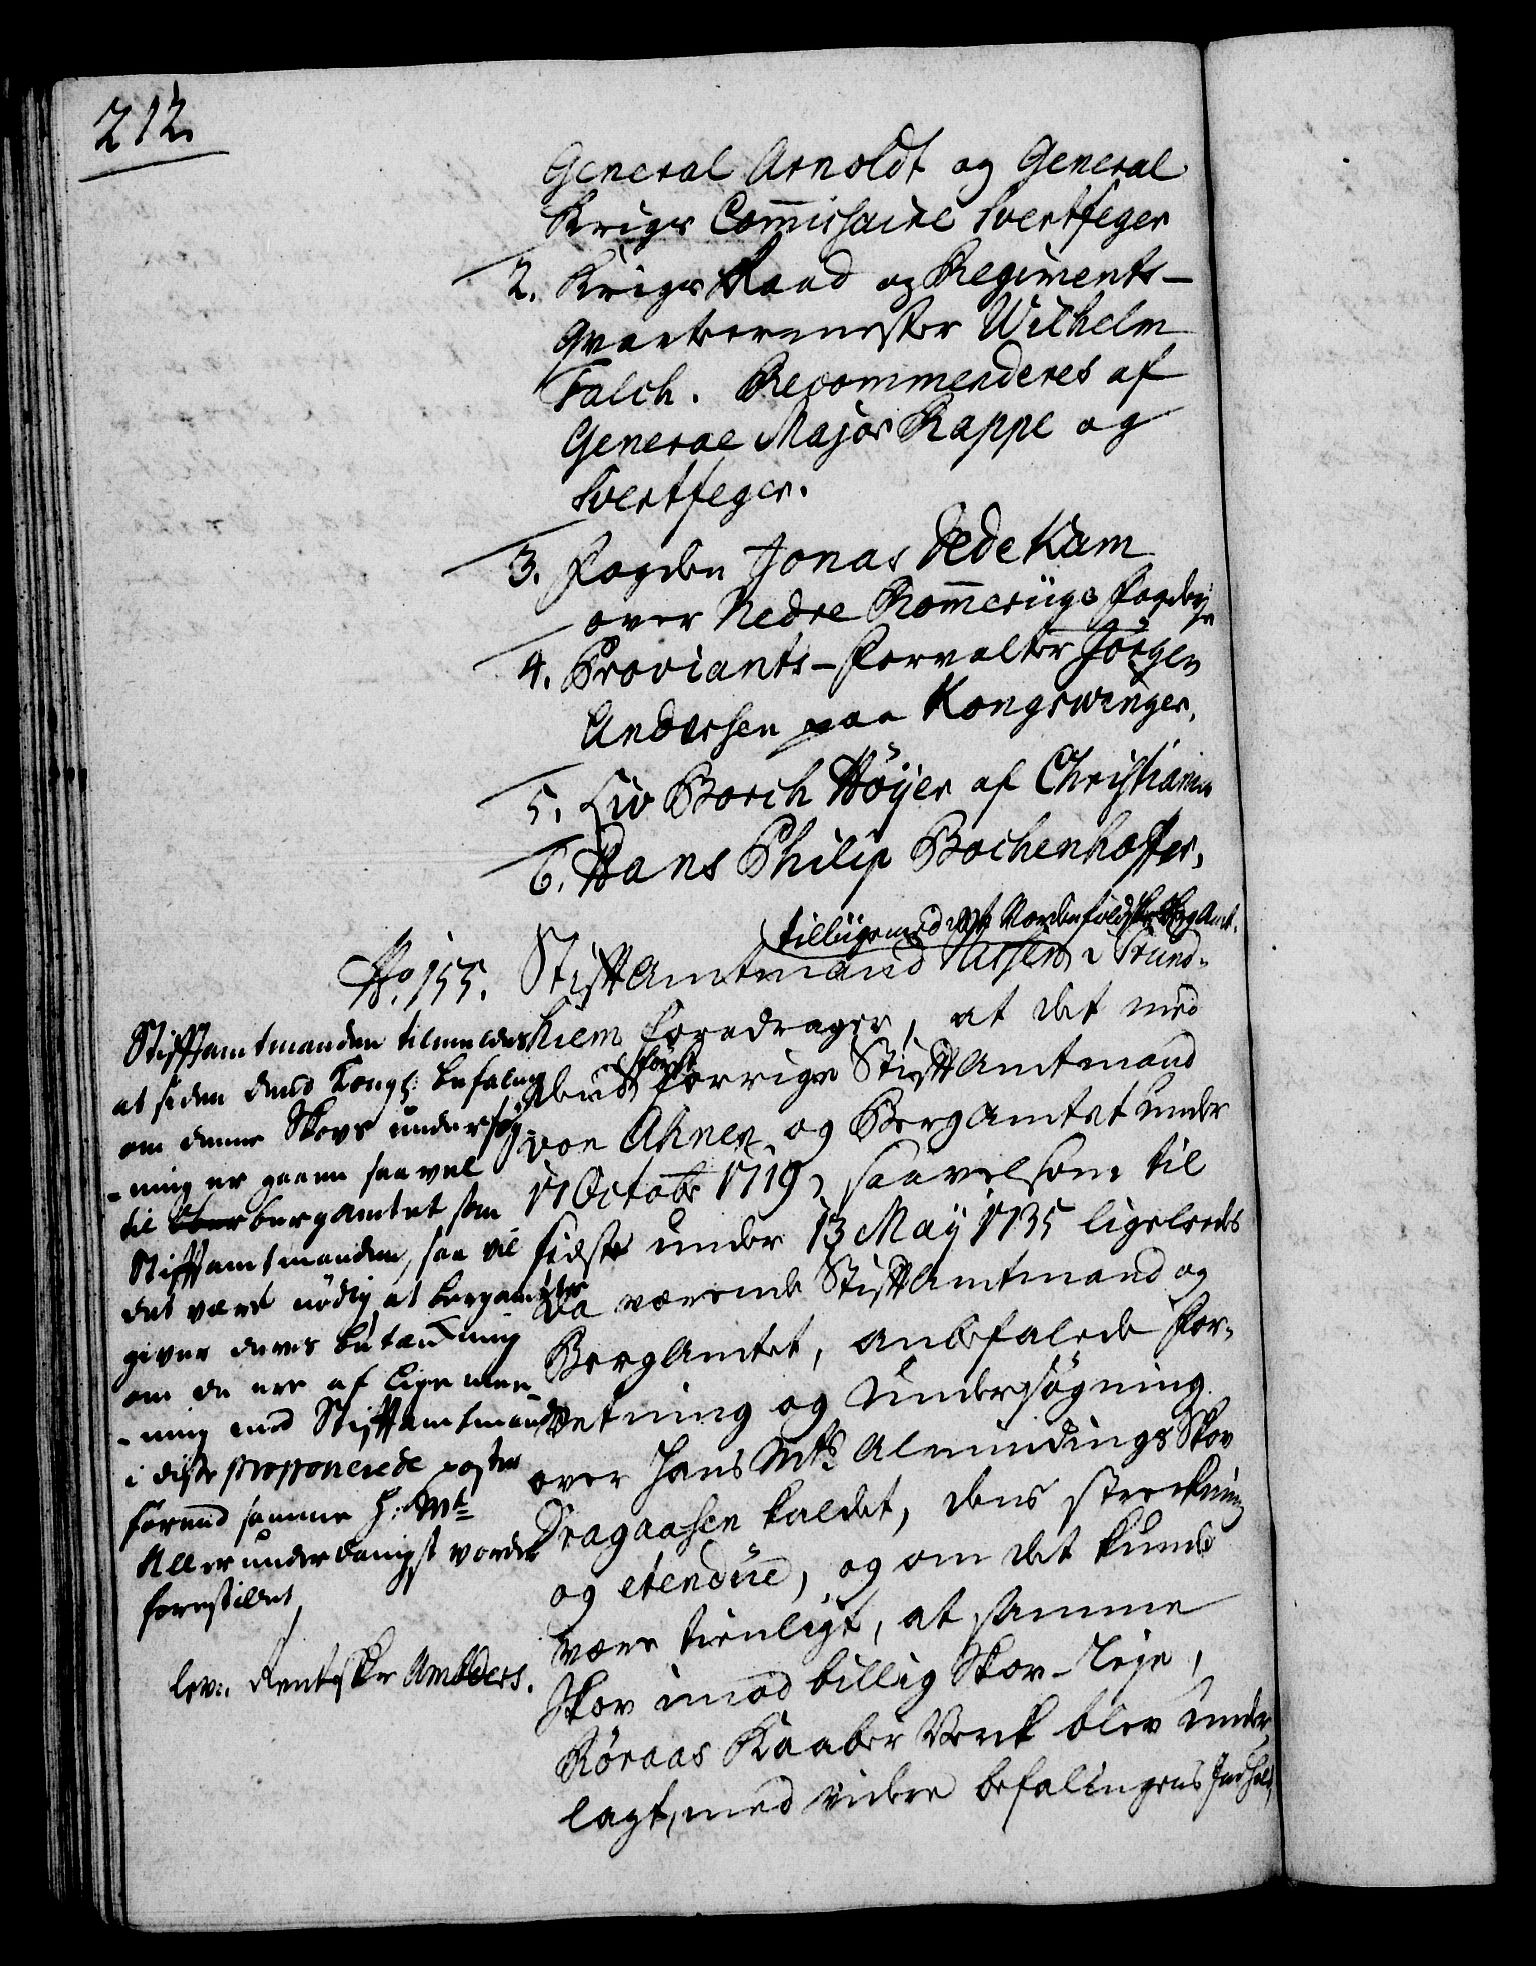 212.
General Arnoldt og General
Krigs Commissaire Svertfeger
2. Krigs Raad og Regiments-
Qvarteermester Wilhelm
Falch. Recommenderes af
General Major Kappe og
Svertfeger.
3. Fogden Jonas Dedekam
over Nedre Rommerügs Fogderje
4. Proviants-Forvalter Jörgen
Andersen paa Kongswinger.
5. Liv Borch Höyer af Christiania
6. Hans Philip Bochenhoffer.
No. 155. StiftAmtmand Nissen i Trund-
tilligemed det Nordenfieldske BergAmt.
hiem foredrager, at det med
deend först forrige StiftAmtmand
von Ahnen og BergAmtet under
17 Octobr 1719, saavelsom til
sidst under 13 May 1735 ligeleedes
da værende StiftAmtmand og
BergAmtet, anbefalede For-
retning og Undersögning
over Hans Mts Almindings Skov
Dragaasen kaldet, dens streckning
og etendüe, og om det kunde
være tienligt, at samme
Skov imod billig Skov-Leje,
Röraas Kaaber Verk blev under
lagt, med videre befalingens Indhold,
Stiftamtmanden tilmeldes
at siden dend Kongl: befaling
om denne Skovs undersög-
-ning er gaaen saa vel
til Ober bergamtet som
Stiftamtmanden, saa vil
det være nödig at bergamtet
giver deres betænkning
om de ere af lige mee-
-ning med Stiftamtmanden
i disse proponerede poster
forend samme H: Mt
Allerunderdanigst vorder
forestillet
lev: Rentskr Ambders.